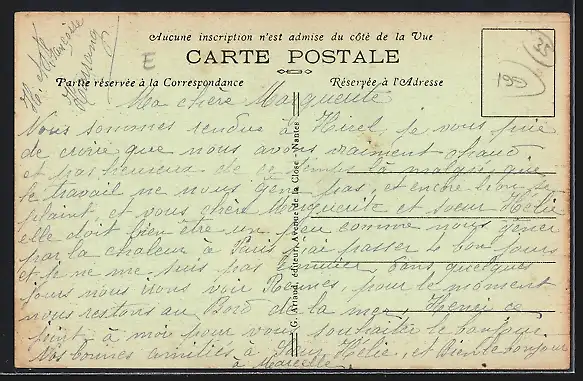 Aucune inscription n'est admise du côté de la Vue
CARTE POSTALE
Partie réservée à la Correspondance
Réservée à l'Adresse
E
33
199
G. Artaud, éditeur, Avenue de la Close - Nantes
Ma chère Marguerite
Nous sommes rendue à je vous prie
de croire que nous avons vraiment chaud
et pas heureux de ce temps là malgré que
le travail ne nous gène pas, et encore bien se
plaint, et vous chère Marguerite et soeur Hélie
elle doit bien être un peu comme nous gêner
par la chaleur à Paris, j'ai passer 2 bon jours
et je ne me suis pas Dans quelques
jours nous irons voir Rennes, pour le moment
nous restons au Bord de la mer, Henri ce
joint à moi pour vous souhaiter le bonjour
Nos bonnes amitiés à Jean, Hélie, et Bien le bonjour
à Marcelle